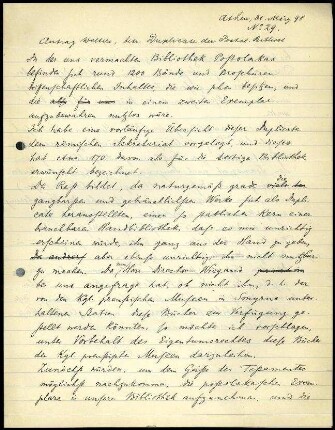 Athen, 31. März 98
No 29.
Antrag Wolters, betr. Duplicate der Postol. Bibliot
In der uns vermachten Bibliothek Postolakas
befinden sich rund 1200 Bände und Broschüren
wissenschaftlichen Inhaltes die wir schon besitzen, und
die in einem zweiten Exemplar
aufzubewahren nutzlos wäre.
Ich habe eine vorläufige Übersicht dieser Duplicate
dem römischen Sekretariat vorgelegt, und dieses
hat etwa 170 davon als für die dortige Bibliothek
erwünscht bezeichnet.
Der Rest bildet, da naturgemäß grade die
gangbarsten und gebräuchlichsten Werke sich als Dupli-
cate herausstellten, einen so stattlichen Kern einer
brauchbaren Handbibliothek, daß es mir unrichtig
erscheinen würde, ihn ganz aus der Hand zu geben,
aber ebenso unrichtig ihn nicht nutzbar
zu machen. Da nun Herr Director Wiegand
bei uns angefragt hat, ob nicht ihm, d. h. der
von den Kgl. preußischen Museen in Smyrna unter-
haltenen Station diese Bücher zur Verfügung ge-
stellt werden könnten, so möchte ich vorschlagen,
unter Vorbehalt des Eigentumsrechtes diese Bücher
den Kgl. preußischen Museen darzuleihen.
Zunächst würden, um dem Geiste des Testamentes
möglichst nachzukommen, die postolakaschen Exem-
plare in unsere Bibliothek aufzunehmen, und die